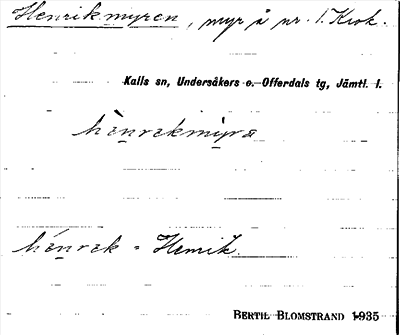 Henrikmyren, myr å nr. 1. Krok.
Kalls sn, Undersåkers o. Offerdals tg, Jämtl. l.
hènrekmy̆ra
hènrek = Henrik.
BERTIL BLOMSTRAND 1935